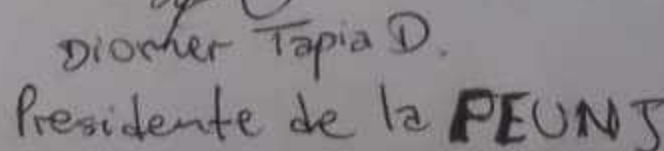 Diomer Tapia D.
Presidente de la PEUNJ